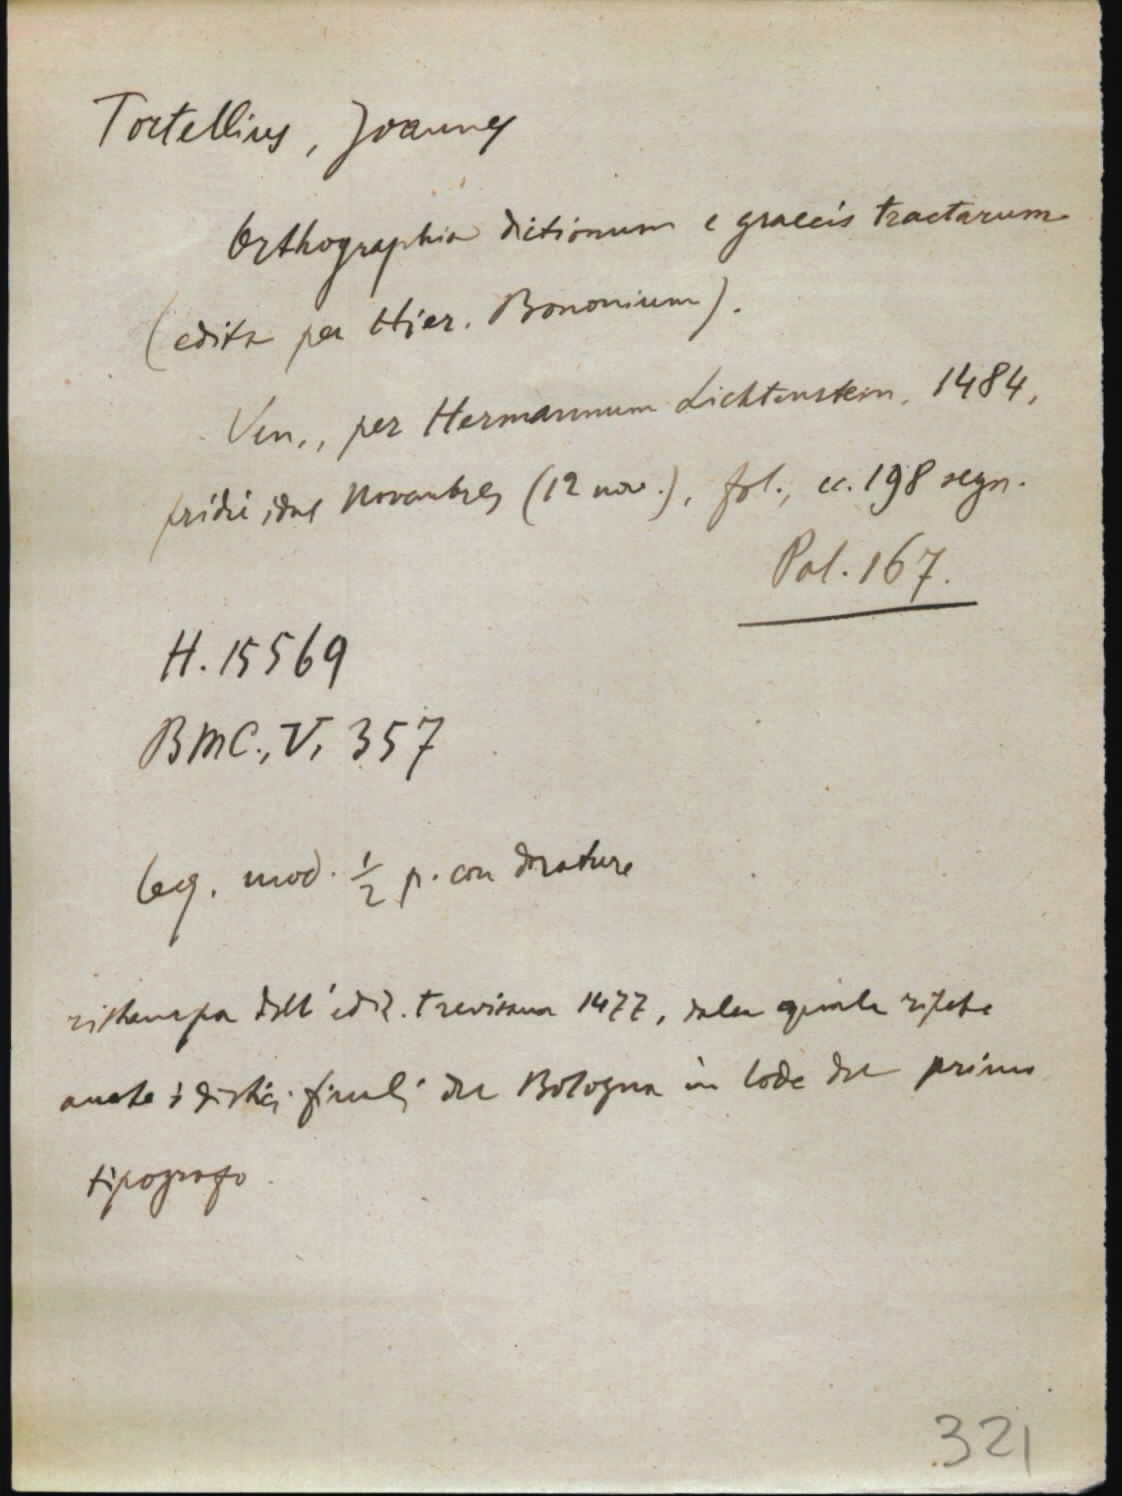 Tortellius, Joannes
Orthographia dictionum e graecis tractarum
(edita per Hier. Bononium).
Ven., per Hermannum Lichtenstein, 1484,
pridie idus Novembres (12 nov.), fol., cc. 198 segn.
Pal. 167.
H. 15569
BMC., V, 357
leg. mod. ½ p. con dorature
ristampa dell'ediz. trevisana 1477, dalla quale ripete
anche i distici finali del Bologna in lode del primo
tipografo
321